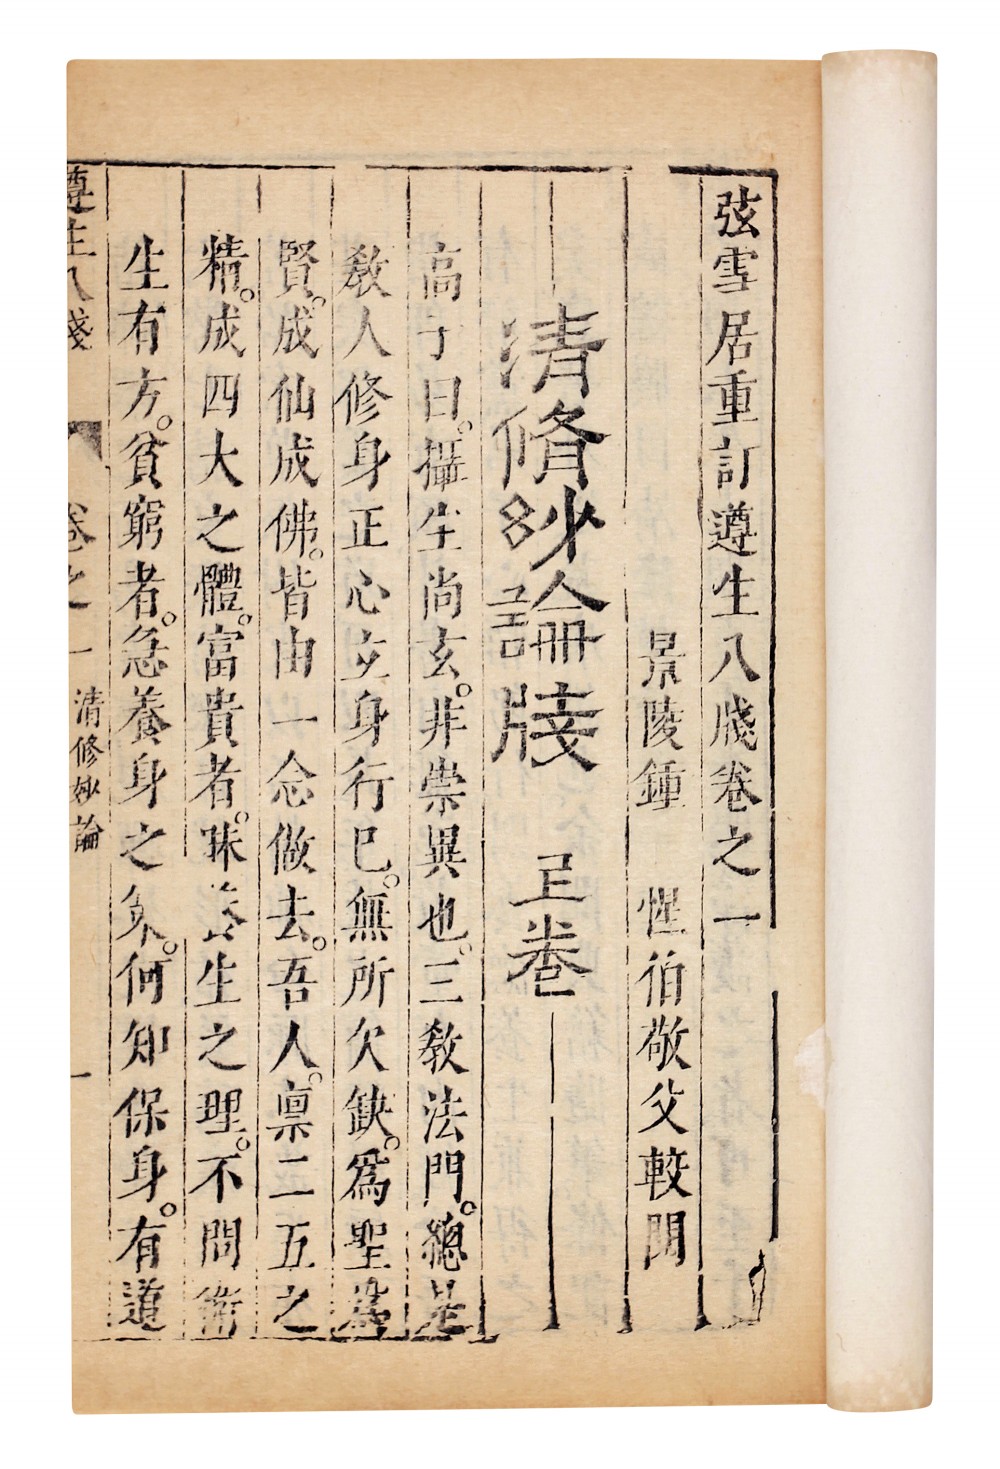 弦雪居重訂遵生八牋卷之一
景陵鍾 惺伯敬父較閱
清脩玅論牋 上卷
高子曰。攝生尚玄。非崇異也。三教法門。總是
教人修身正心立身行己。無所欠缺。爲聖爲
賢。成仙成佛。皆由一念做去。吾人。禀二五之
精。成四大之體。富貴者。昧養生之理。不問衛
生有方。貧窮者。急養身之策。何知保身。有道
遵生八牋 卷之一 清修妙論 一